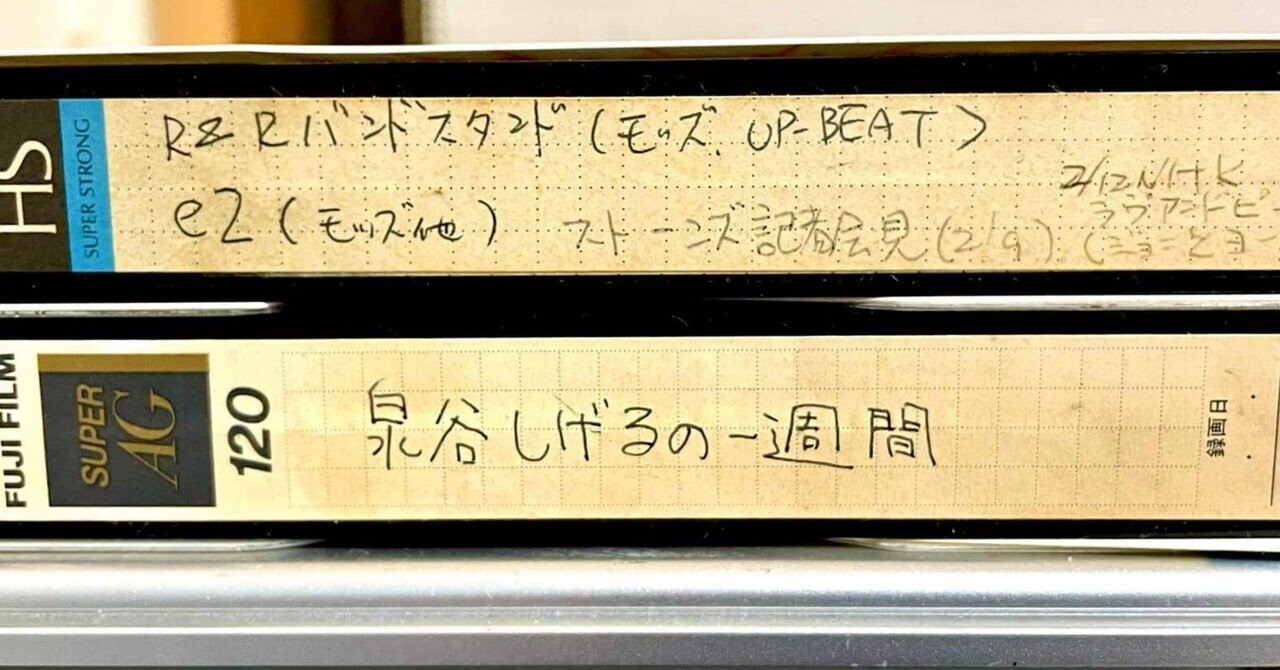 HS
SUPER STRONG
R&Rバンドスタンド(モッズ、UP-BEAT)
e2(モッズ他)
ストーンズ記者会見(2/9)
2/12NHK
ラブアンドピー
(ジョンとヨー
FUJI FILM
SUPER
AG
120
泉谷しげるの一週間
録画日